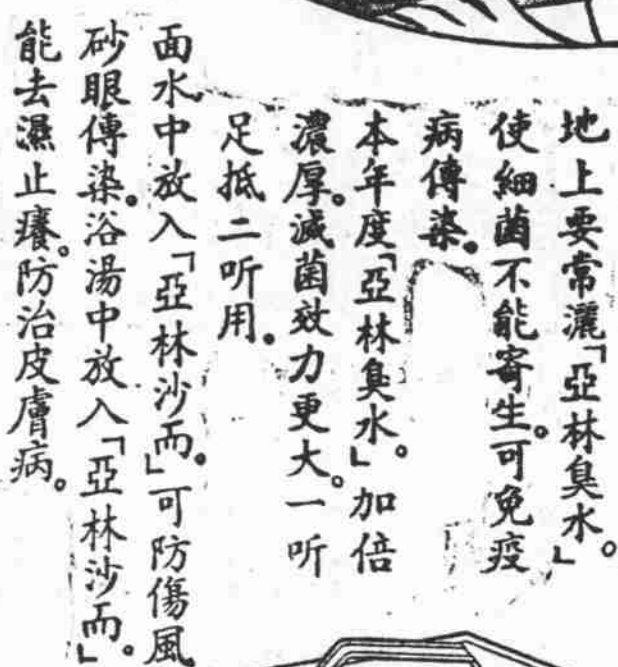 地上要常灑「亞林臭水」。
使細菌不能寄生。可免疫
病傳染。
本年度「亞林臭水」。加倍
濃厚。滅菌效力更大。一听
足抵二听用。
面水中放入「亞林沙而」。可防傷風
砂眼傳染。浴湯中放入「亞林沙而」。
能去濕止癢。防治皮膚病。